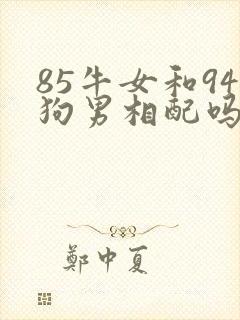 85牛女和94
狗男相配吗
鄭中夏